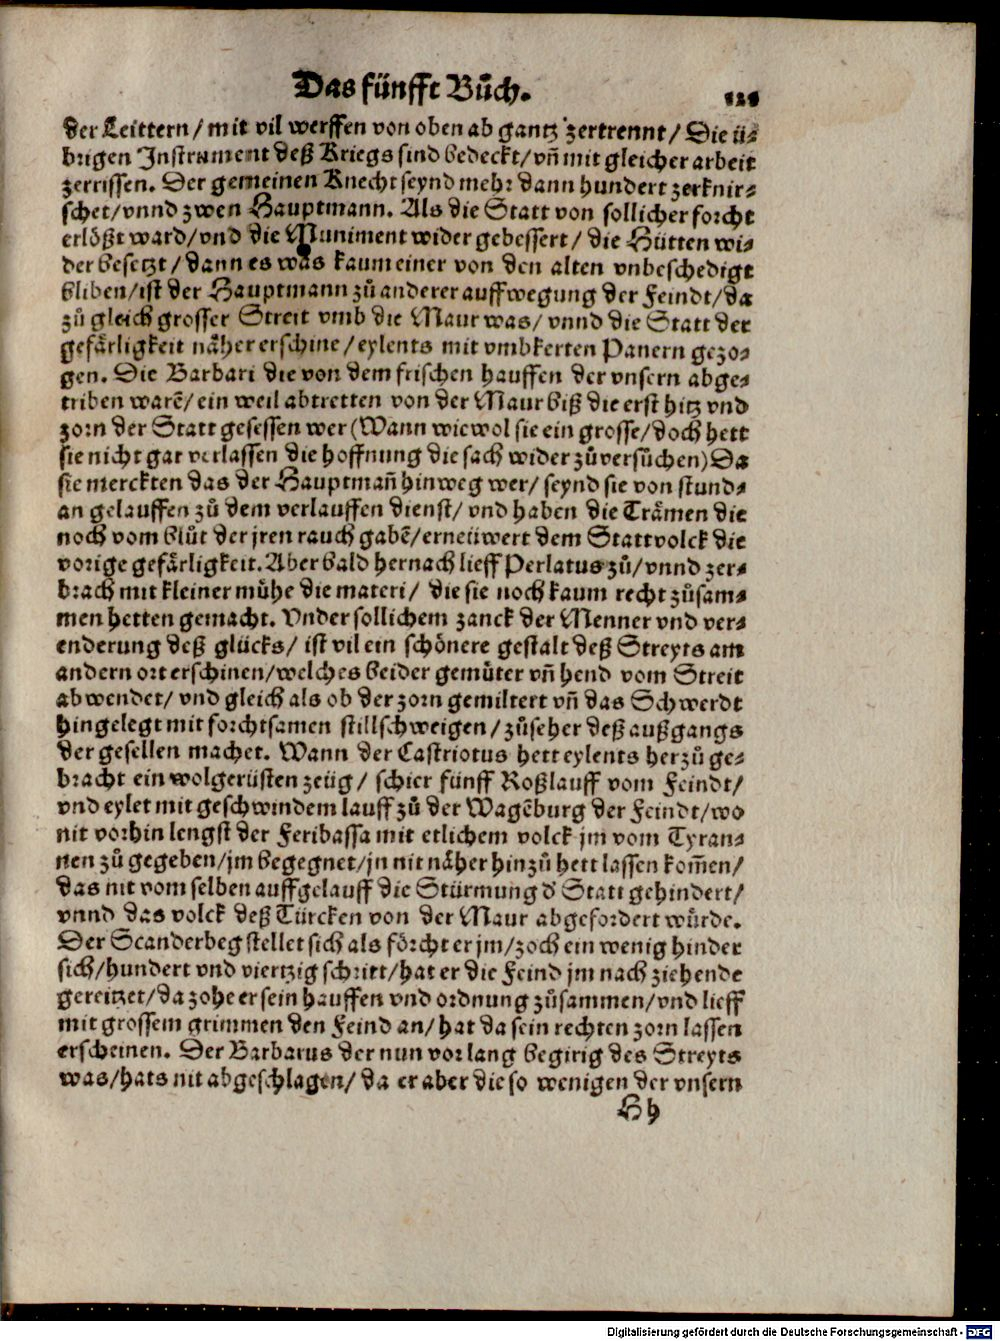 Das fünfft Bůch.
121
der Leittern/ mit vil werffen von oben ab gantz zertrennt/ Die ü-
brigen Instrument deß Kriegs sind bedeckt/ vñ mit gleicher arbeit
zerrissen. Der gemeinen Knecht seynd mehr dann hundert zerknir-
schet/ vnnd zwen Hauptmann. Als die Statt von sollicher forcht
erlößt ward/ vnd die Muniment wider gebessert/ die Hütten wi-
der besetzt/ dann es was kaum einer von den alten vnbeschedigt
bliben/ ist der Hauptmann zů anderer auffwegung der Feindt/ da
zů gleich grosser Streit vmb die Maur was/ vnnd die Statt der
gefärligkeit näher erschine/ eylents mit vmbkerten Panern gezo-
gen. Die Barbari die von dem frischen hauffen der vnsern abge-
triben warẽ/ ein weil abtretten von der Maur biß die erst hitz vnd
zorn der Statt gesessen wer (Wann wiewol sie ein grosse/ doch hett
sie nicht gar verlassen die hoffnung die sach wider zů versůchen) Da
sie merckten das der Hauptmañ hinweg wer/ seynd sie von stund-
an gelauffen zů dem verlauffen dienst/ vnd haben die Trämen die
noch vom blůt der jren rauch gabẽ/ erneüwert dem Stattvolck die
vorige gefärligkeit. Aber bald hernach lieff Perlatus zů/ vnnd zer-
brach mit kleiner mühe die materi/ die sie noch kaum recht zůsam-
men hetten gemacht. Vnder sollichem zanck der Menner vnd ver-
enderung deß glücks/ ist vil ein schönere gestalt deß Streyts am
andern ort erschinen/ welches beider gemůter vñ hend vom Streit
abwendet/ vnd gleich als ob der zorn gemiltert vñ das Schwerdt
hingelegt mit forchtsamen stillschweigen/ zůseher deß außgangs
der gesellen machet. Wann der Castriotus hett eylents herzů ge-
bracht ein wolgerüsten zeüg/ schier fünff Roßlauff vom Feindt/
vnd eylet mit geschwindem lauff zů der Wagẽburg der Feindt/ wo
nit vorhin lengst der Feribassa mit etlichem volck jm vom Tyran-
nen zů gegeben/ jm begegnet/ jn nit näher hinzů hett lassen kom̃en/
das nit vom selben aufflauff die Stürmung d' Statt gehindert/
vnnd das volck deß Türcken von der Maur abgefordert würde.
Der Scanderbeg stellet sich als förcht er jm/ zoch ein wenig hinder
sich/ hundert vnd viertzig schritt/ hat er die Feind jm nach ziehende
gereitzet/ da zohe er sein hauffen vnd ordnung zůsammen/ vnd lieff
mit grossem grimmen den Feind an/ hat da sein rechten zorn lassen
erscheinen. Der Barbarus der nun vor lang begirig des Streyts
was/ hats nit abgeschlagen/ da er aber die so wenigen der vnsern
Hh
Digitalisierung gefördert durch die Deutsche Forschungsgemeinschaft - DFG